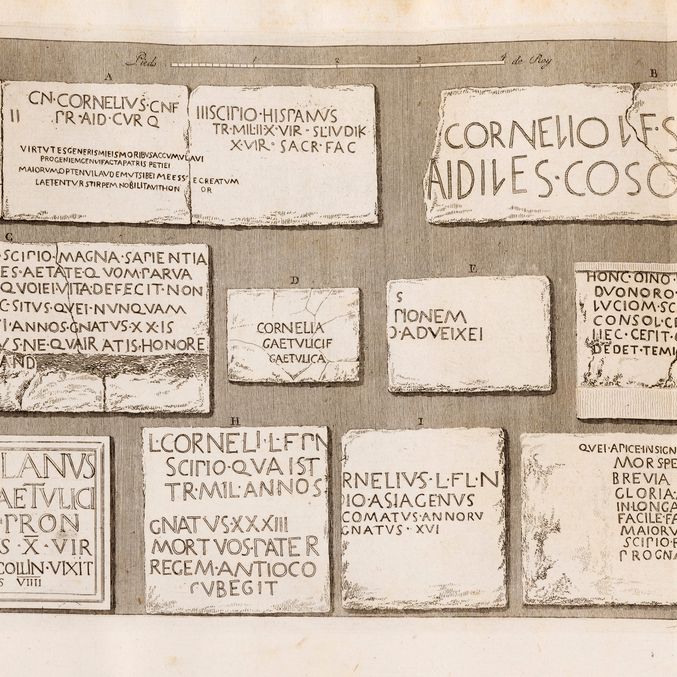 Pieds 1 2 3 4 de Roy
A
CN·CORNELIVS·CNF
PR·AID·CVR Q
VIRTVTES GENERIS MIEIS MORIBVS ACCVMVLAVI
PROGENIEM GENVI FACTA PATRIS PETIEI
MAIORVM OPTENVI LAVDEM VT SIBEI ME ESS
LAETENTVR STIRPEM NOBILITAVIT HON
III SCIPIO·HISPANVS
TR·MIL·II X·VIR·SL·IVDIK
X·VIR·SACR·FAC
E CREATVM
OR
B
CORNELIO L·F·S
AIDILES·COSO
C
SCIPIO·MAGNA·SAPIENTIA
ES·AETATE·QVOM·PARVA
QVOIEI·VITA·DEFECIT·NON
C·SITVS·QVEI·NVNQVAM
I·ANNOS·GNATVS·XX·IS
VS·NE·QVAIRATIS·HONORE
AND
D
CORNELIA
GAETVLICI F
GAETVLICA
E
S
PIONEM
O·ADVEIXEI
HONC·OINO·
DVONORO·
LVCIOM·SC
CONSOL·CE
HEC·CEPIT·
DEDET·TEMP
LANVS
AETVLICI
PRON
S X·VIR
COLLIN·VIXIT
S VIIII
H
L·CORNELI·L·F·P·N
SCIPIO·QVAIST
TR·MIL·ANNOS
GNATVS·XXXIII
MORTVOS·PATER
REGEM·ANTIOCO
SVBEGIT
I
RNELIVS·L·F·L·N
IO·ASIAGENVS
COMATVS·ANNORV
GNATVS·XVI
QVEI·APICE·INSIGN
MORS·PE
BREVIA
GLORIA·
IN·LONGA
FACILE·FA
MAIORVM
SCIPIO·
PROGNA